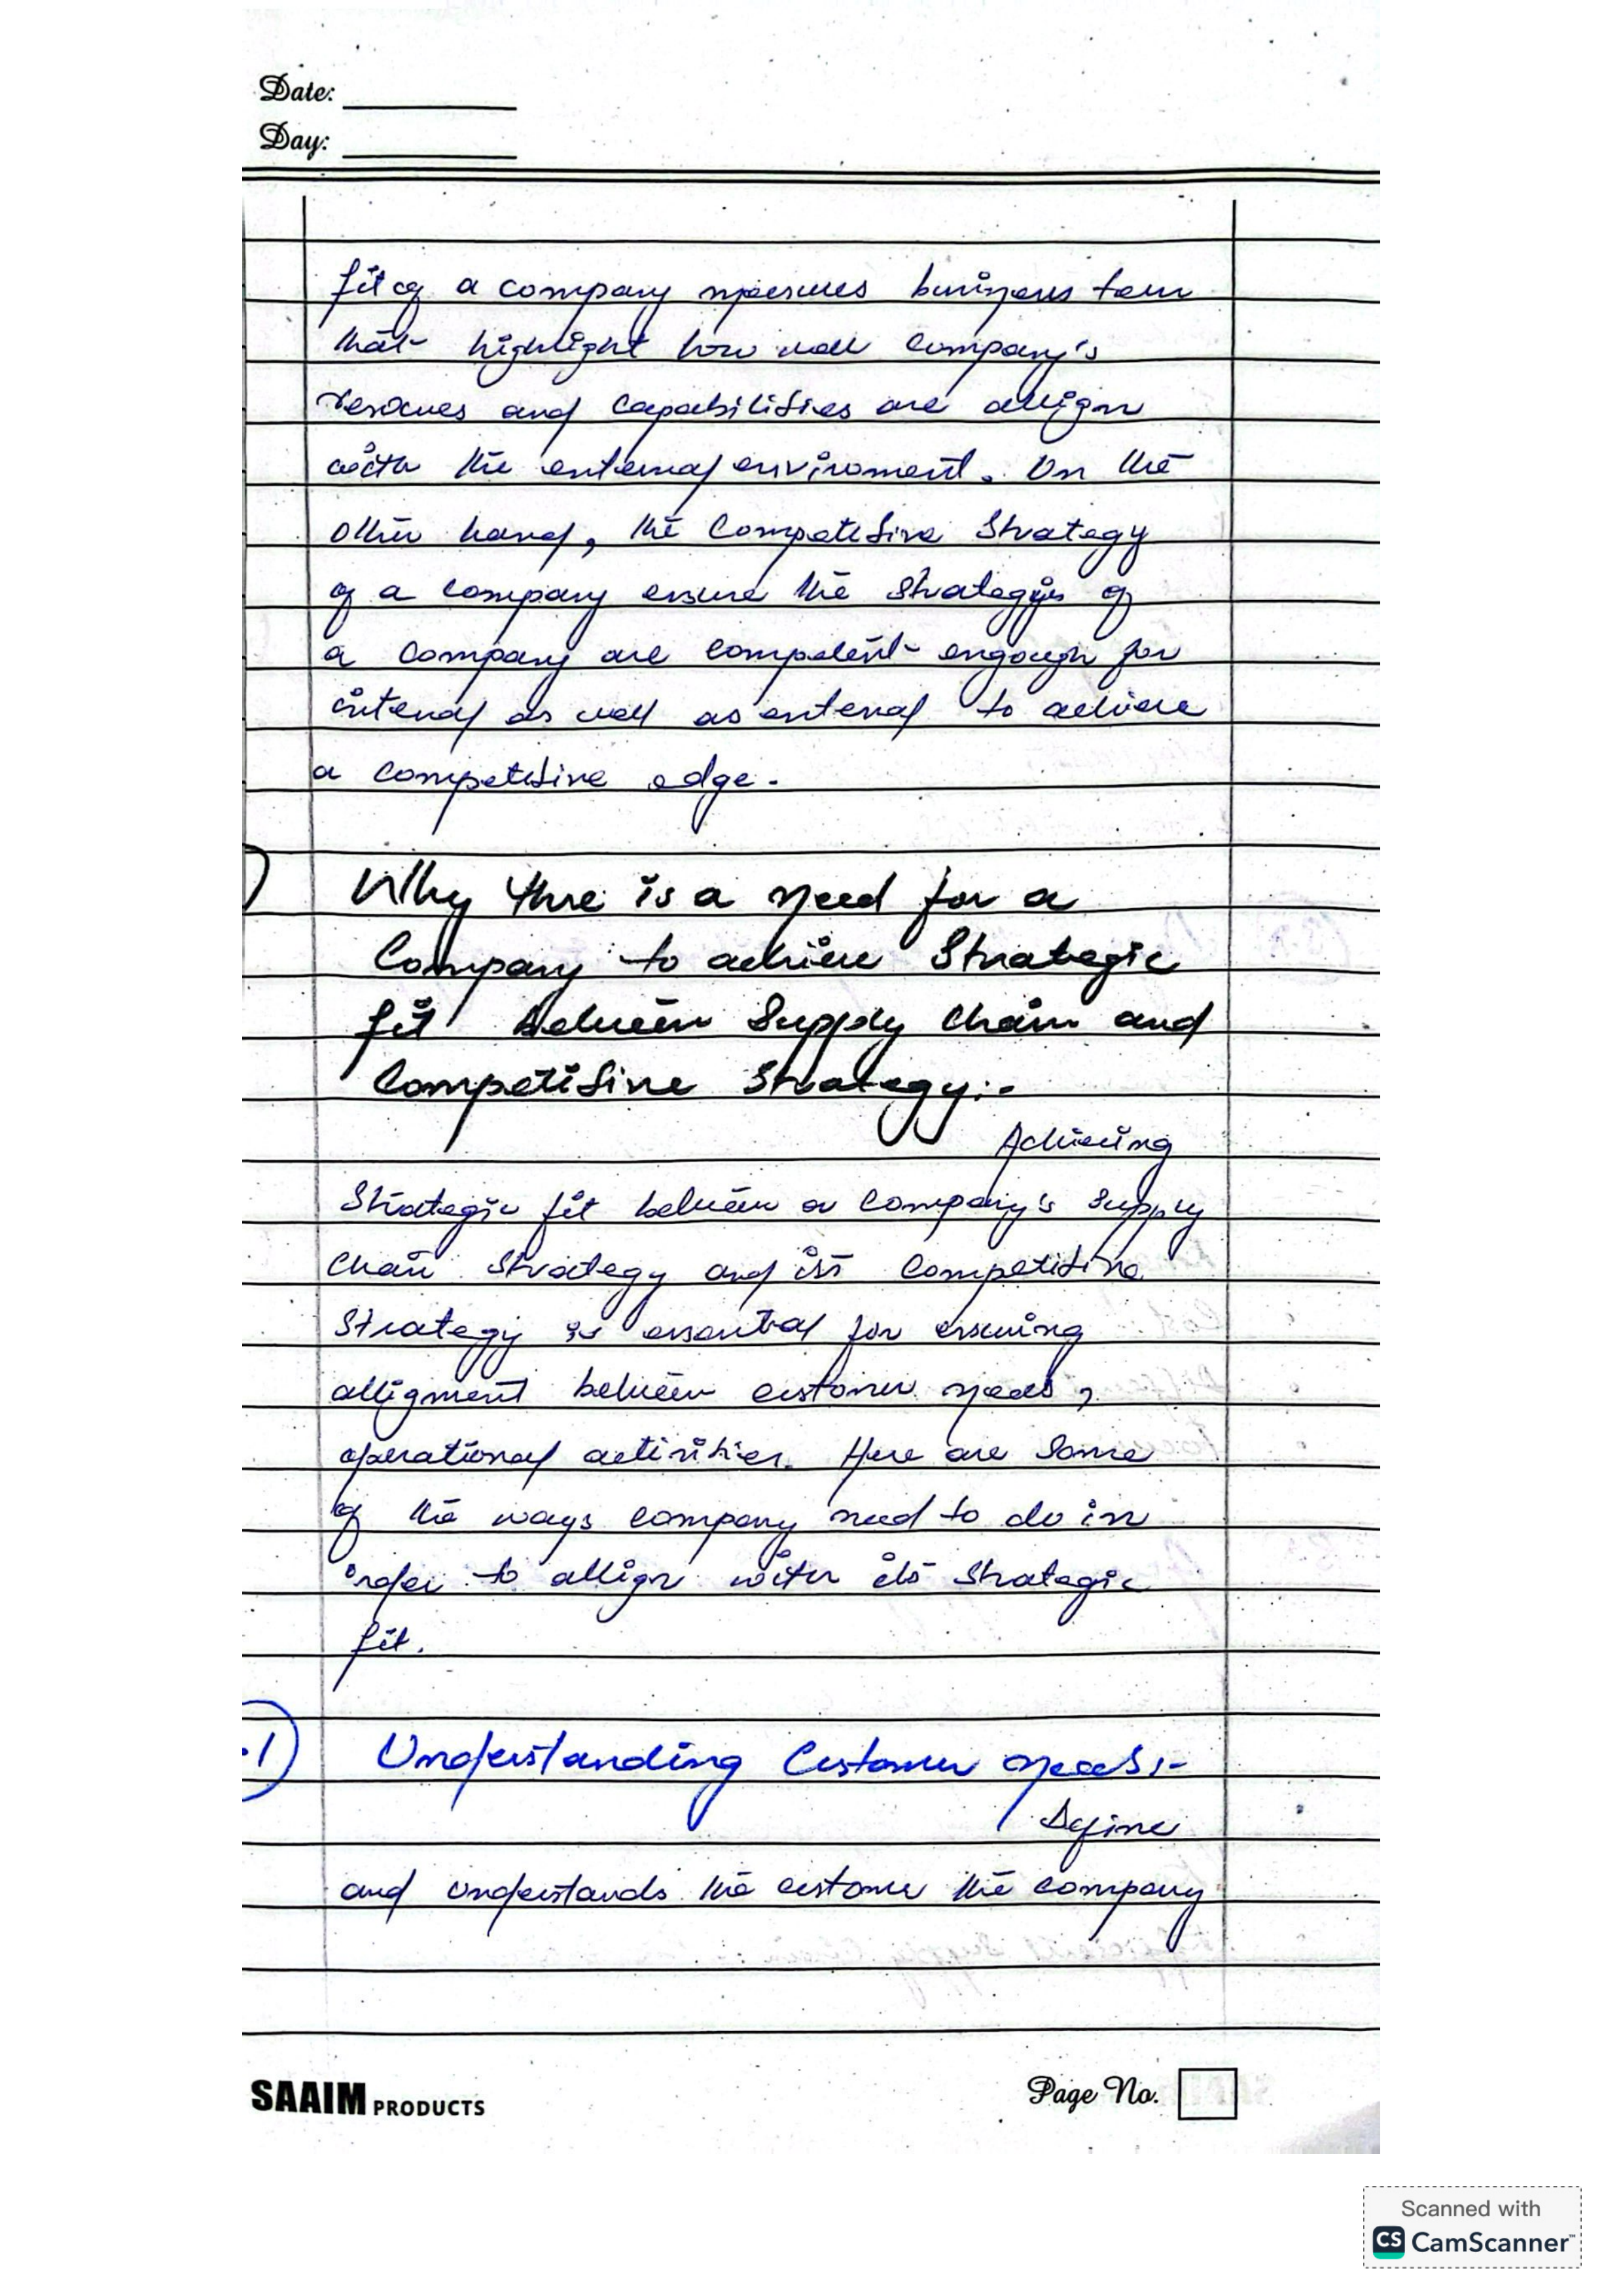 Date:
Day:
fit of a company measures business term
that highlight how well company's
resources and capabilities are allign
with the external enviroment. On the
other hand, the Competitive Strategy
of a company ensure the Strategys of
a company are competent engough for
internal as well as external to achieve
a competitive edge.
Why there is a need for a
Company to achieve Strategic
fit between Supply Chain and
Competitive Strategy:-
Achieving
Strategic fit between a Company's Supply
Chain Strategy and its Competitive
Strategy is essential for ensuring
alligment between customer needs,
operational activities. Here are Some
of the ways company need to do in
order to allign with its Strategic
fit.
.1) Understanding Customer needs:-
Define
and understands the customer the company
SAAIM PRODUCTS
Page No.
Scanned with
CS CamScanner™